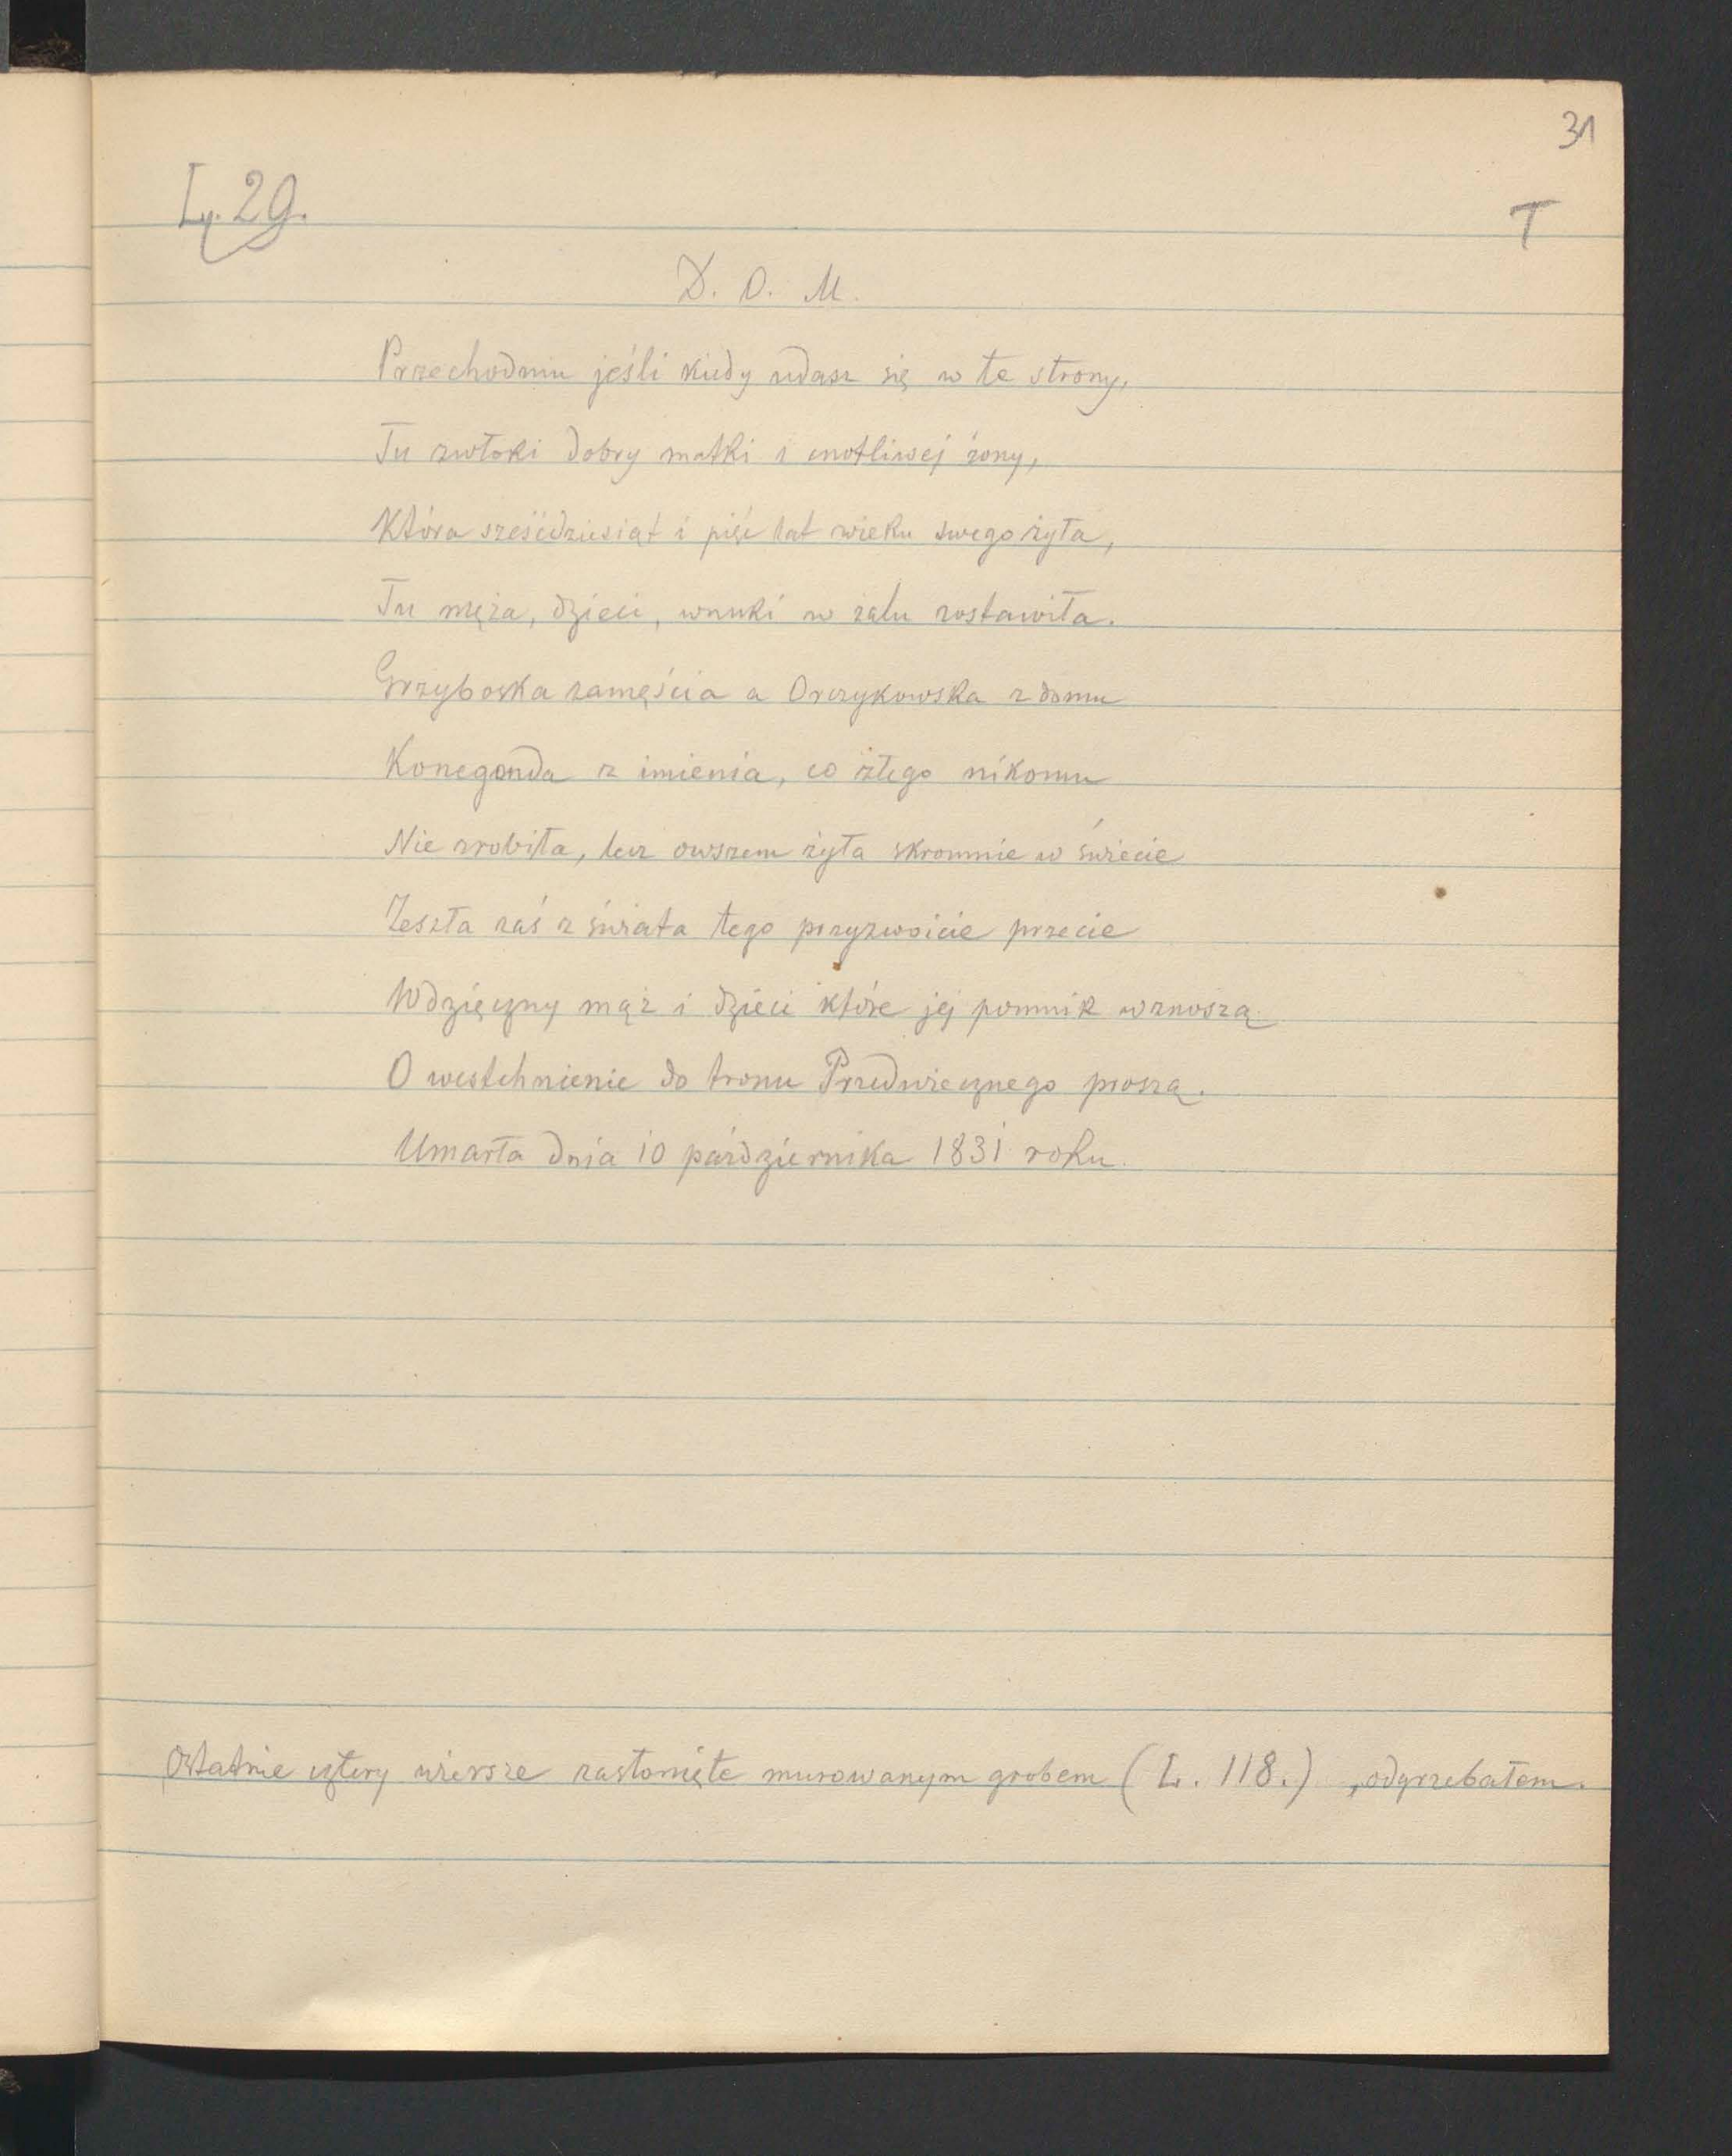 31
L. 29.
T
D. O. M.
Przechodniu jeśli kiedy udasz się w te strony,
Tu zwłoki dobry matki i cnotliwej żony,
Która sześćdziesiąt i pięć lat wieku swego żyła,
Tu męża, dzieci, wnuki w żalu zostawiła.
Grzyboska zamęścia a Orczykowska z domu
Konegonda z imienia, co złego nikomu
Nie zrobiła, lecz owszem żyła skromnie w świecie
Zeszła zaś z świata tego przyzwoicie przecie
Wdzięczny mąż i dzieci które jej pomnik wznoszą
O westchnienie do tronu Przedwiecznego proszą.
Umarła dnia 10 października 1831 roku.
Ostatnie cztery wiersze zasłonięte murowanym grobem (L. 118.), odgrzebałem.